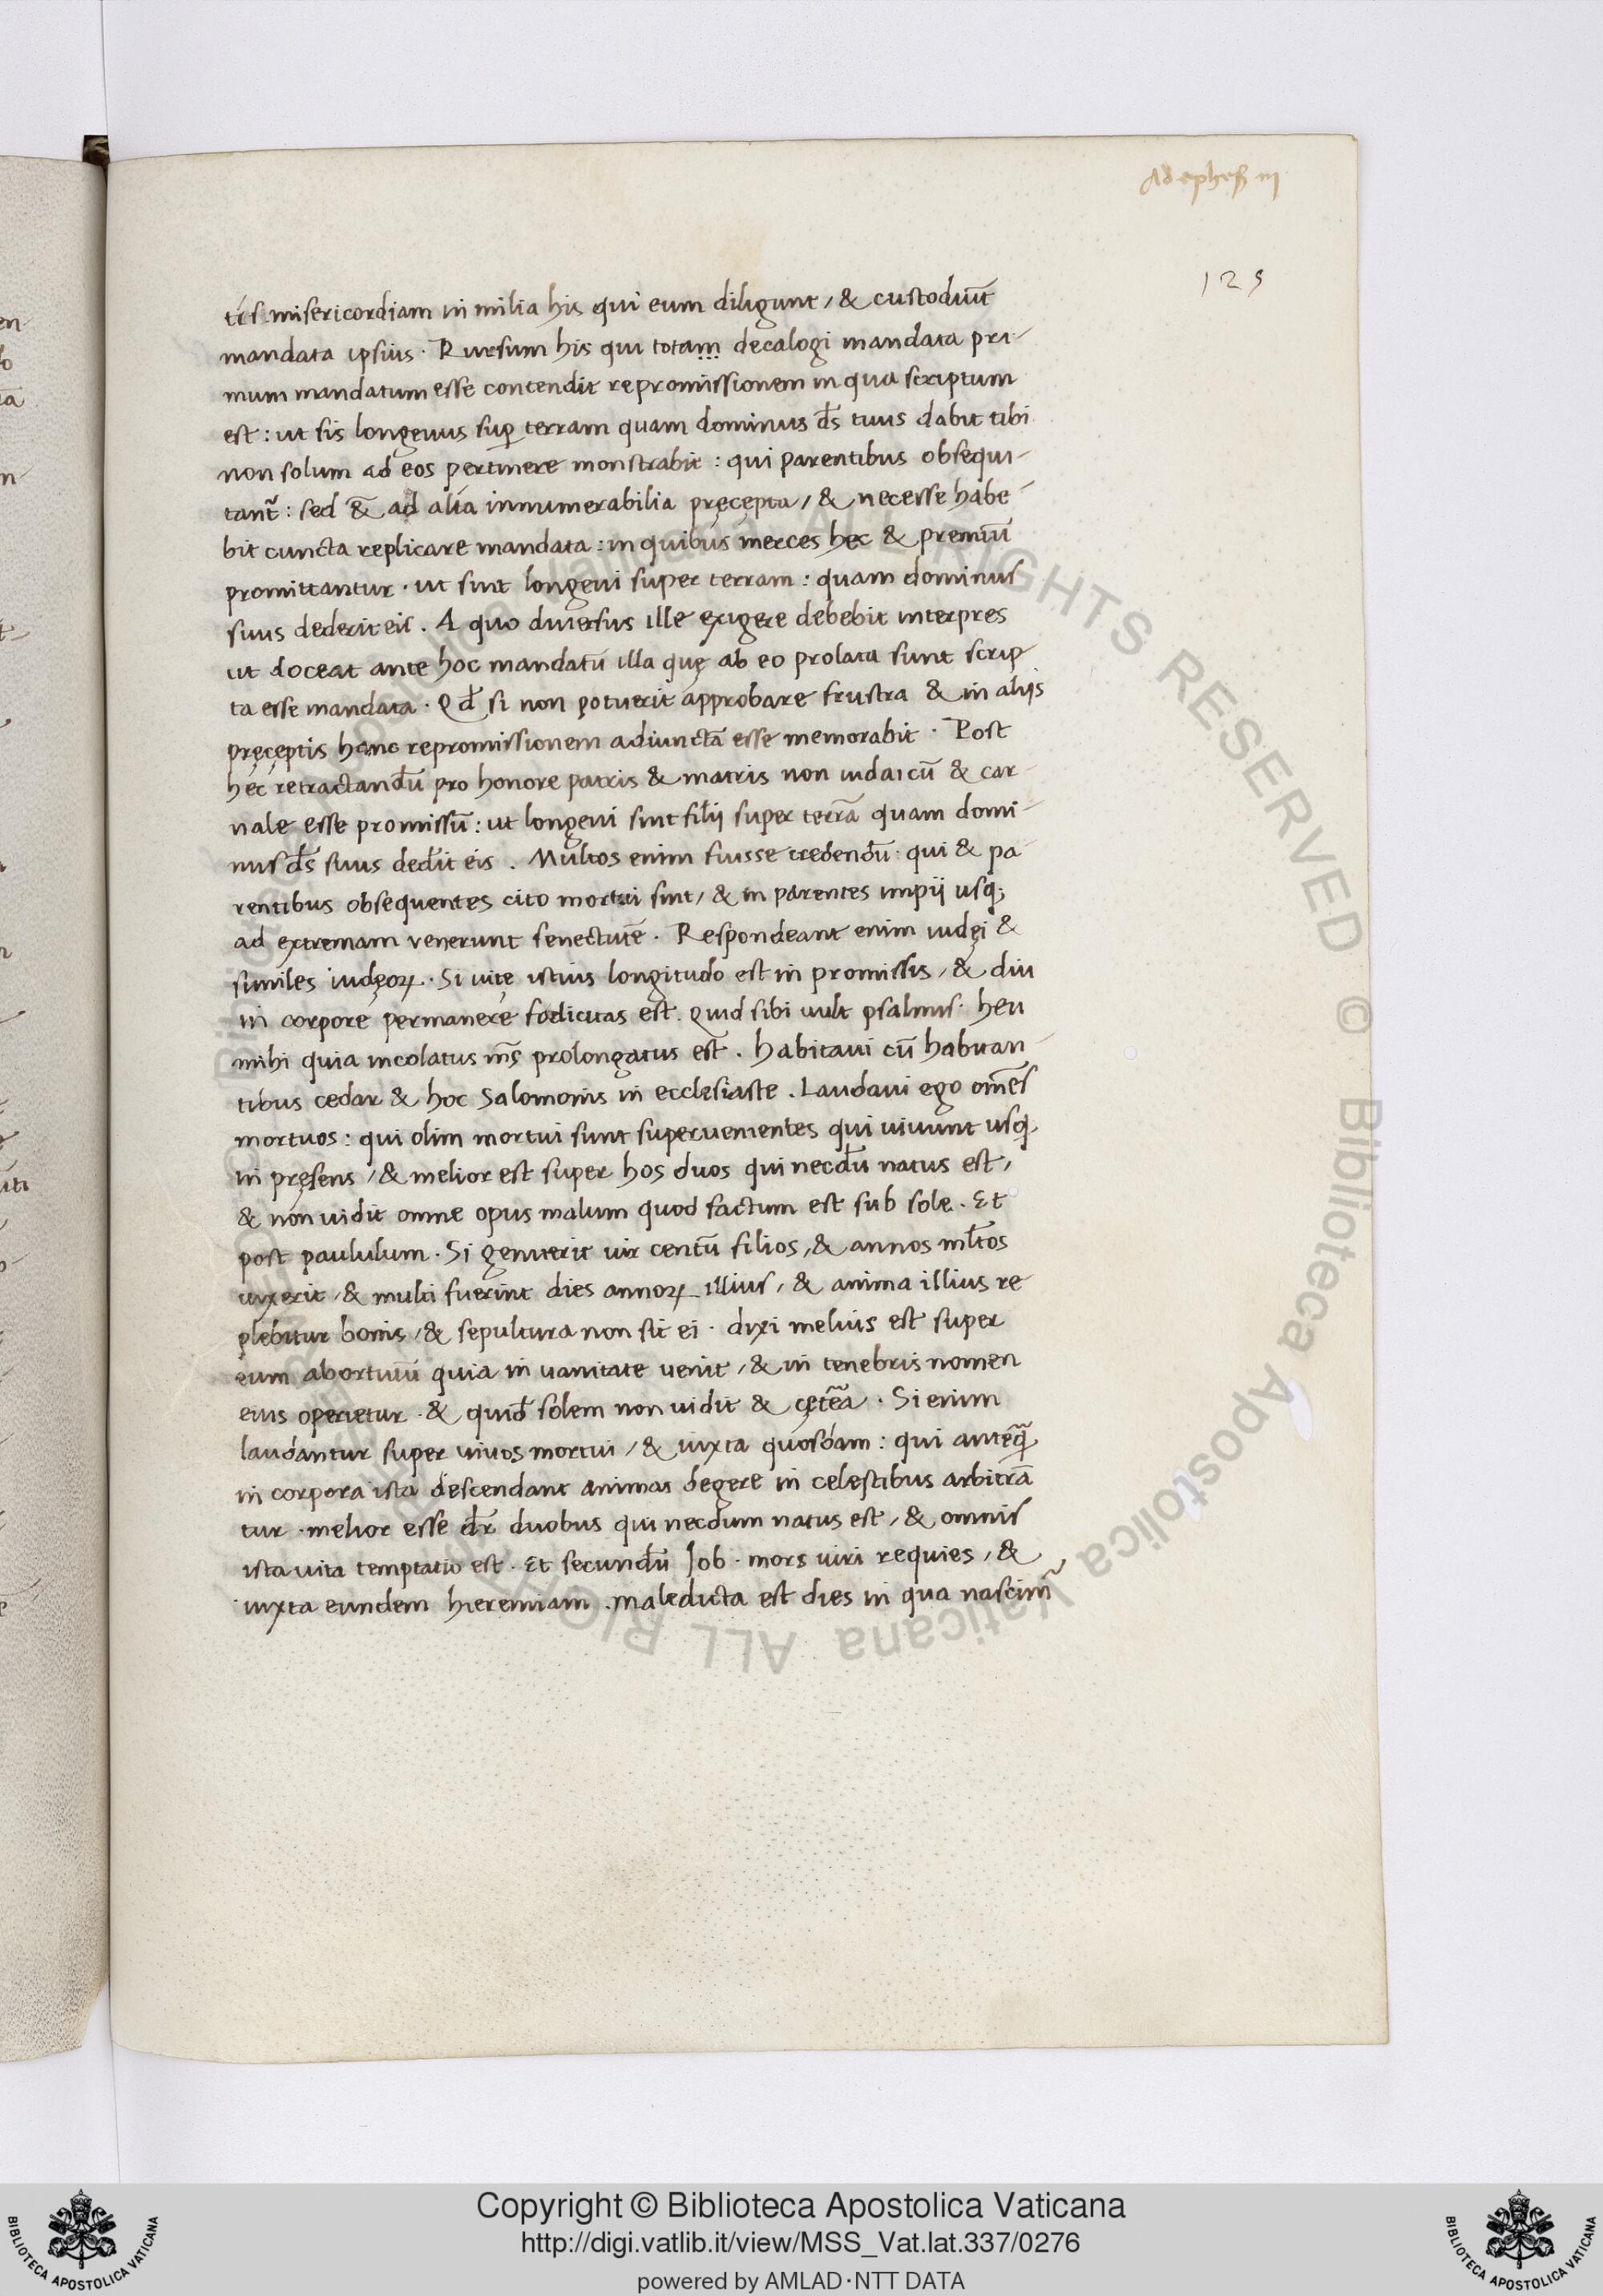 Ad ephes̄ iii
125
tis misericordiam in milia his qui eum diligunt, & custodiūt
mandata ipsius. Rursum his qui totam decalogi mandata pri-
mum mandatum esse contendit repromissionem in qua scriptum
est: ut sis longeuus sup̱ terram quam dominus d̄s tuus dabit tibi
non solum ad eos pertinere monstrabit: qui parentibus obsequi-
tant̃: sed &̄ ad alia innumerabilia pręcepta, & necesse habe-
bit cuncta replicare mandata: in quibus merces hec & premiū
promittantur. ut sint longeui super terram: quam dominus
suus dederit eis. A quo diuersus ille exigere debebit interpres
ut doceat ante hoc mandatū illa quę ab eo prolata sunt scrip-
ta esse mandata. Qd̄ si non potuerit approbare frustra & in alijs
pręceptis hanc repromissionem adiunctā esse memorabit. Post
hęc retractandū pro honore patris & matris non iudaicū & car-
nale esse promissū: ut longeui sint filij super terrā quam domi-
nus d̄s suus dederit eis. Multos enim fuisse credendū: qui & pa-
rentibus obsequentes cito mortui sint, & in parentes impij usq;
ad extremam venerunt senectutē. Respondeant enim iudęi &
similes iudęoꝝ. Si uitę istius longitudo est in promissis, & diu
in corpore permanere fœlicitas est. Quid sibi uult psalmus. heu
mihi quia incolatus m̄s prolongatus est. Habitaui cū habitan-
tibus cedar & hoc Salomonis in ecclesiaste. Laudaui ego om̄es
mortuos: qui olim mortui sunt superuenientes qui uiuunt usq;
in pręsens, & melior est super hos duos qui necdū natus est,
& non uidit omne opus malum quod factum est sub sole. Et
post paululum. Si genuerit uir centū filios, & annos ml̄tos
uixerit, & multi fuerint dies annoꝝ illius, & anima illius re-
plebitur bonis, & sepultura non sit ei. dixi melius est super
eum abortiuū quia in uanitate uenit, & in tenebris nomen
eius operietur. & quid̄ solem non uidit & cętēa. Si enim
laudantur super uiuos mortui, & iuxta quosdam: qui anteq̄ꝫ
in corpora ista descendant animas degere in celestibus arbitrā
tur. melior esse dr̄ duobus qui necdum natus est, & omnis
ista uita temptatio est. Et secundū Job. mors uiri requies, &
iuxta eundem hieremiam. maledicta est dies in qua nascim̃
Copyright © Biblioteca Apostolica Vaticana
http://digi.vatlib.it/view/MSS_Vat.lat.337/0276
powered by AMLAD·NTT DATA
BIBLIOTECA APOSTOLICA VATICANA
BIBLIOTECA APOSTOLICA VATICANA